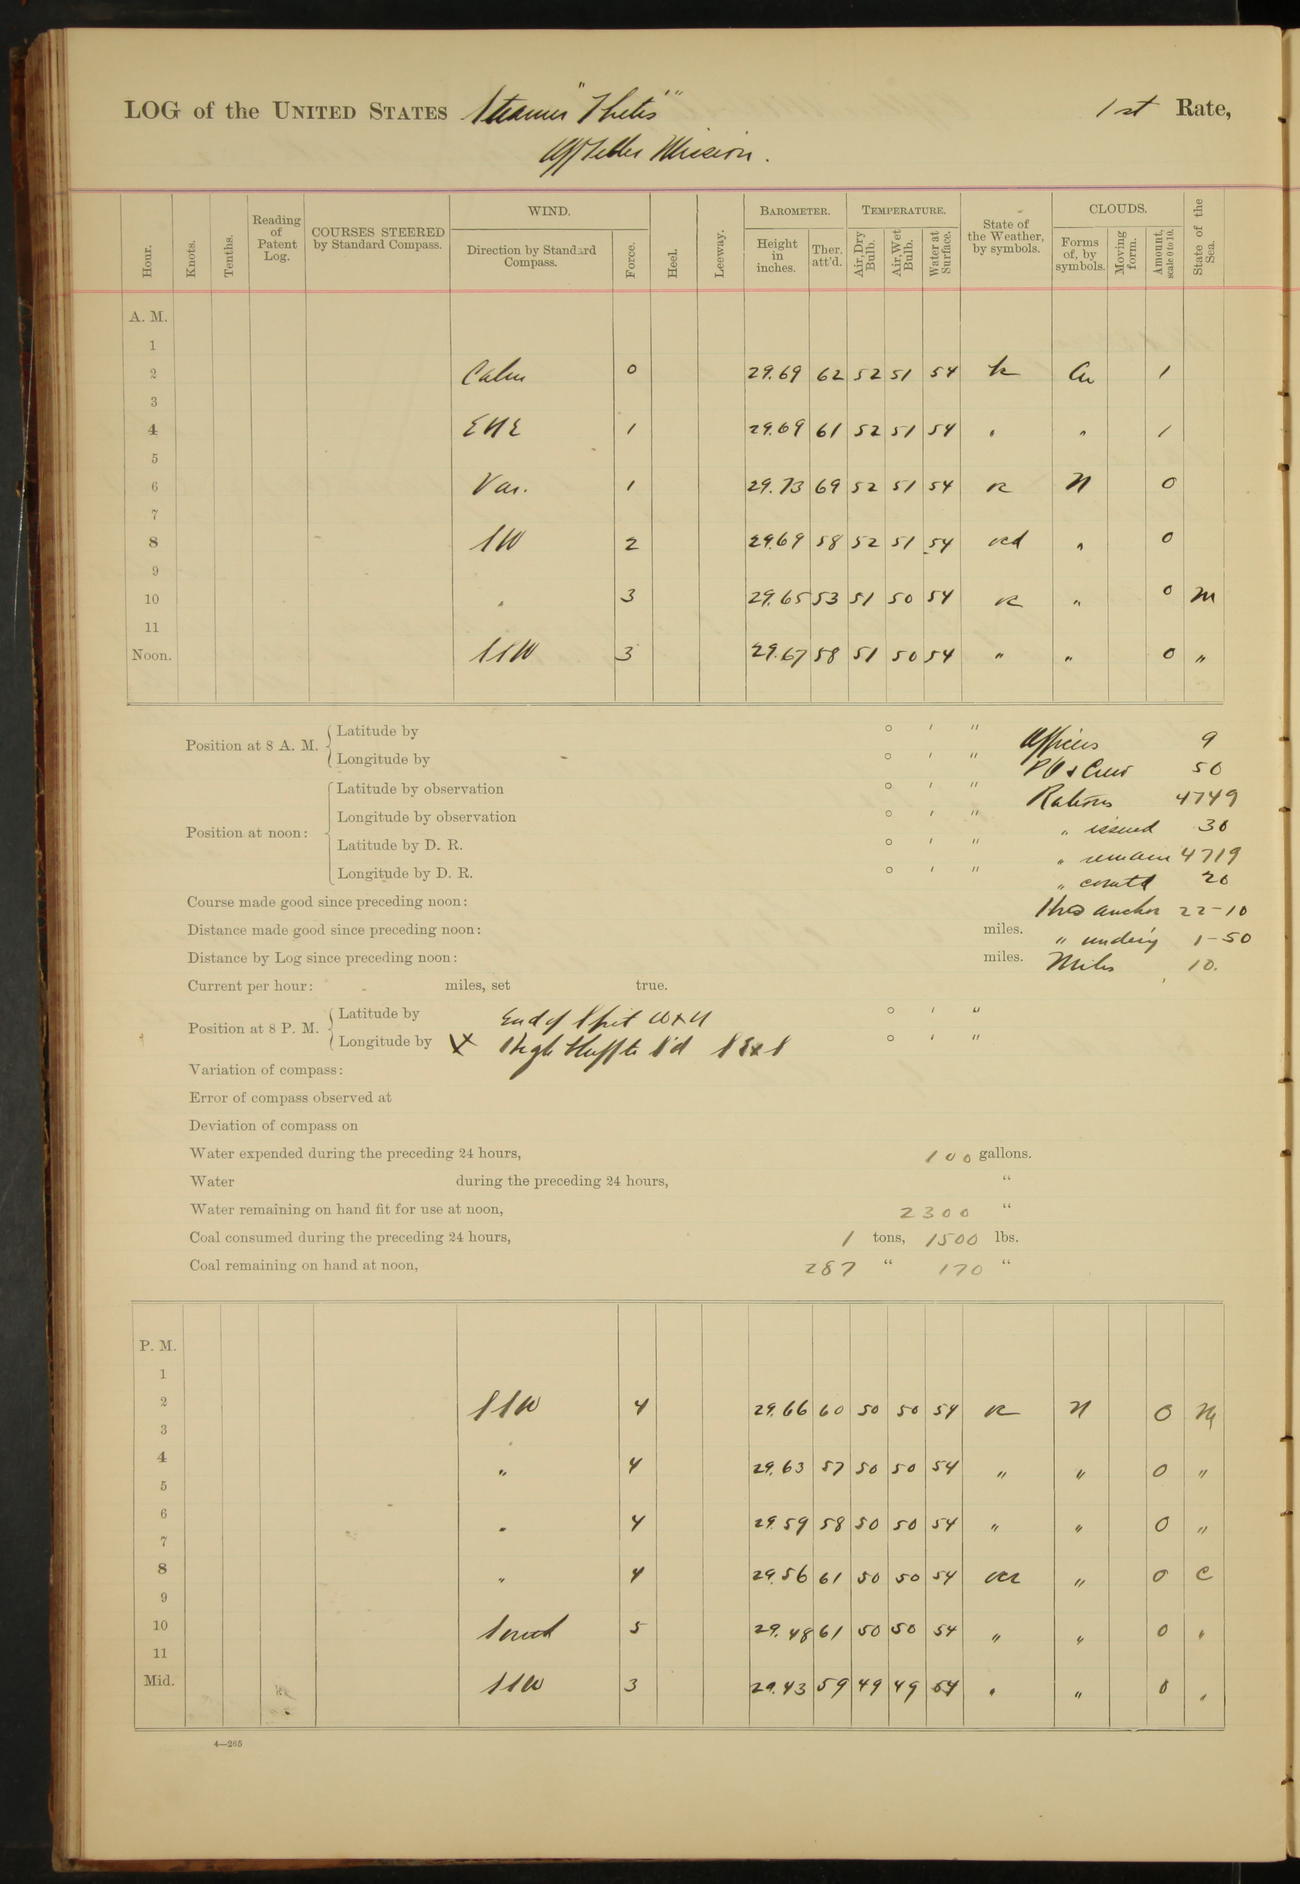 LOG of the UNITED STATES Steamer "Thetis" 1st Rate,
Off Teller Mission.
Hour. Knots. Tenths. Reading of Patent Log. COURSES STEERED by Standard Compass. WIND. Direction by Standard Compass. Force. Heel. Leeway. BAROMETER. Height in inches. Ther. att'd. TEMPERATURE. Air, Dry Bulb. Air, Wet Bulb. Water at Surface. State of the Weather, by symbols. CLOUDS. Forms of, by symbols. Moving form. Amount, scale 0 to 10. State of the Sea.
A. M.
1
2 Calm 0 29.69 62 52 51 54 Cu 1
3
4 ENE 1 29.69 61 52 51 54 " " 1
5
6 Var. 1 29.73 69 52 51 54 N 0
7
8 SW 2 29.69 58 52 51 54 " 0
9
10 " 3 29.65 53 51 50 54 " 0 M
11
Noon. SSW 3 29.67 58 51 50 54 " " 0 "
Position at 8 A. M. Latitude by ° ' " Officers 9
Longitude by ° ' " PO & Crew 50
Position at noon: Latitude by observation ° ' " Rations 4749
Longitude by observation ° ' " " issued 30
Latitude by D. R. ° ' " " remain 4719
Longitude by D. R. ° ' " " 20
Course made good since preceding noon: Hrs anchor 22-10
Distance made good since preceding noon: miles. " under'y 1-50
Distance by Log since preceding noon: miles. Miles 10.
Current per hour: miles, set true.
Position at 8 P. M. Latitude by End of Spit WxN ° ' "
Longitude by High Bluff to S'd SExS ° ' "
Variation of compass:
Error of compass observed at
Deviation of compass on
Water expended during the preceding 24 hours, 100 gallons.
Water during the preceding 24 hours, "
Water remaining on hand fit for use at noon, 2300 "
Coal consumed during the preceding 24 hours, 1 tons, 1500 lbs.
Coal remaining on hand at noon, 287 " 170 "
P. M.
1
2 SSW 4 29.66 60 50 50 54 N 0 M
3
4 " 4 29.63 57 50 50 54 " " 0 "
5
6 " 4 29.59 58 50 50 54 " " 0 "
7
8 " 4 29.56 61 50 50 54 " 0 C
9
10 South 5 29.48 61 50 50 54 " " 0 "
11
Mid. SSW 3 29.43 59 49 49 54 " " 0 "
4—265